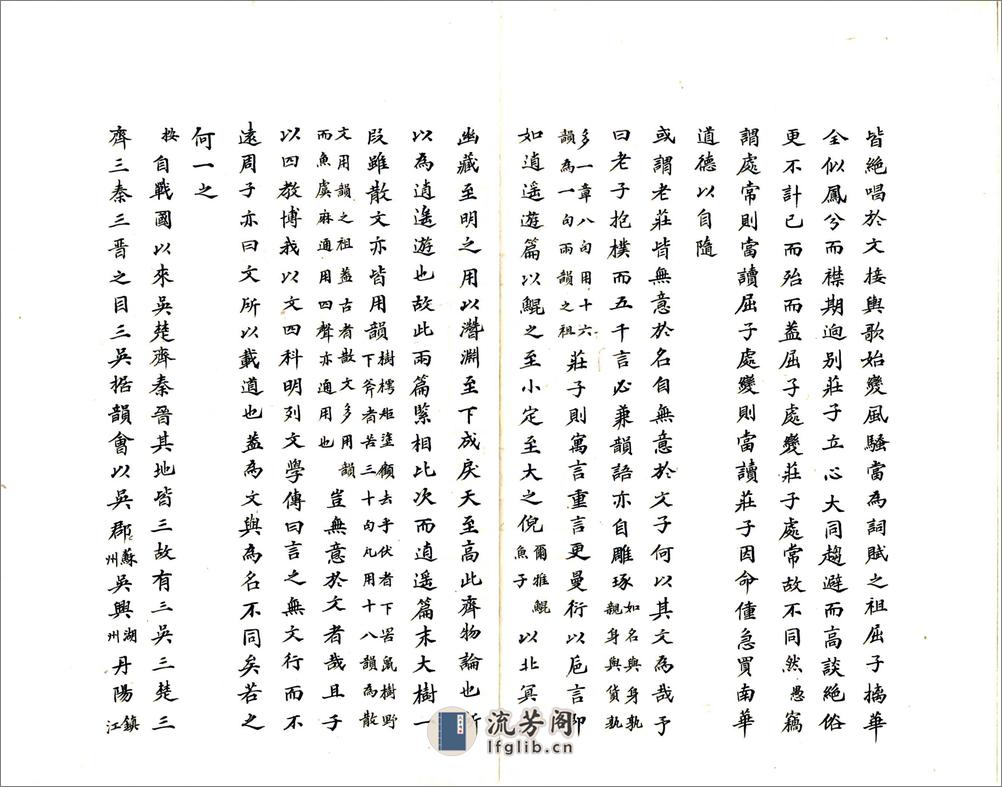 皆絶唱於文接輿歌始變風騷當為詞賦之祖屈子摛華
全似鳳兮而襟期迥別莊子立心大同趨避而高談絶俗
更不計已而殆而盖屈子處變莊子處常故不同然愚竊
謂處常則當讀屈子處變則當讀莊子因命僮急買南華
道德以自隨
或謂老莊皆無意於名自無意於文子何以其文為哉予
曰老子抱樸而五千言必兼韻語亦自雕琢如名與身孰親身與貨孰
多一章八句用十六韻為一句兩韻之祖莊子則寓言重言更曼衍以卮言即
如逍遥遊篇以鯤之至小定至大之倪爾雅鯤魚子以北冥
幽藏至明之用以潛淵至下成戾天至高此齊物論也所
以為逍遥遊也故此兩篇緊相比次而逍遥篇末大樹一
段雖散文亦皆用韻樹樗矩塗顧去乎伏者下罟䑕樹野下斧者苦三十句凡用十八韻為散
文用韻之祖盖古者散文多用韻而魚虞麻通用四聲亦通用也豈無意於文者哉且子
以四教博我以文四科明列文學傳曰言之無文行而不
遠周子亦曰文所以載道也盖為文與為名不同矣若之
何一之
按自戰國以來吳楚齊秦晉其地皆三故有三吳三楚三
齊三秦三晉之目三吳据韻會以吳郡蘇州吳興湖州丹陽鎮江
流芳阁
lfglib.cn